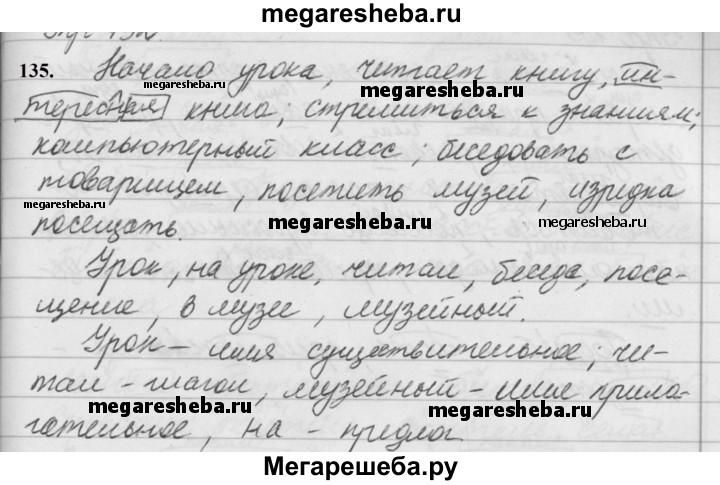 megaresheba.ru
135. Начало урока, читает книгу, ин-
megaresheba.ru
тересная книга; стремиться к знаниям;
компьютерный класс; беседовать с
товарищем, посетить музей, изредка
посещать.
megaresheba.ru
megaresheba.ru
Урок, на уроке, читал, беседа, посе-
щение, в музее, музейный.
Урок – имя существительное; чи-
тал – глагол, музейный – имя прила-
megaresheba.ru
megaresheba.ru
гательное, на – предлог.
Мегарешеба.ру